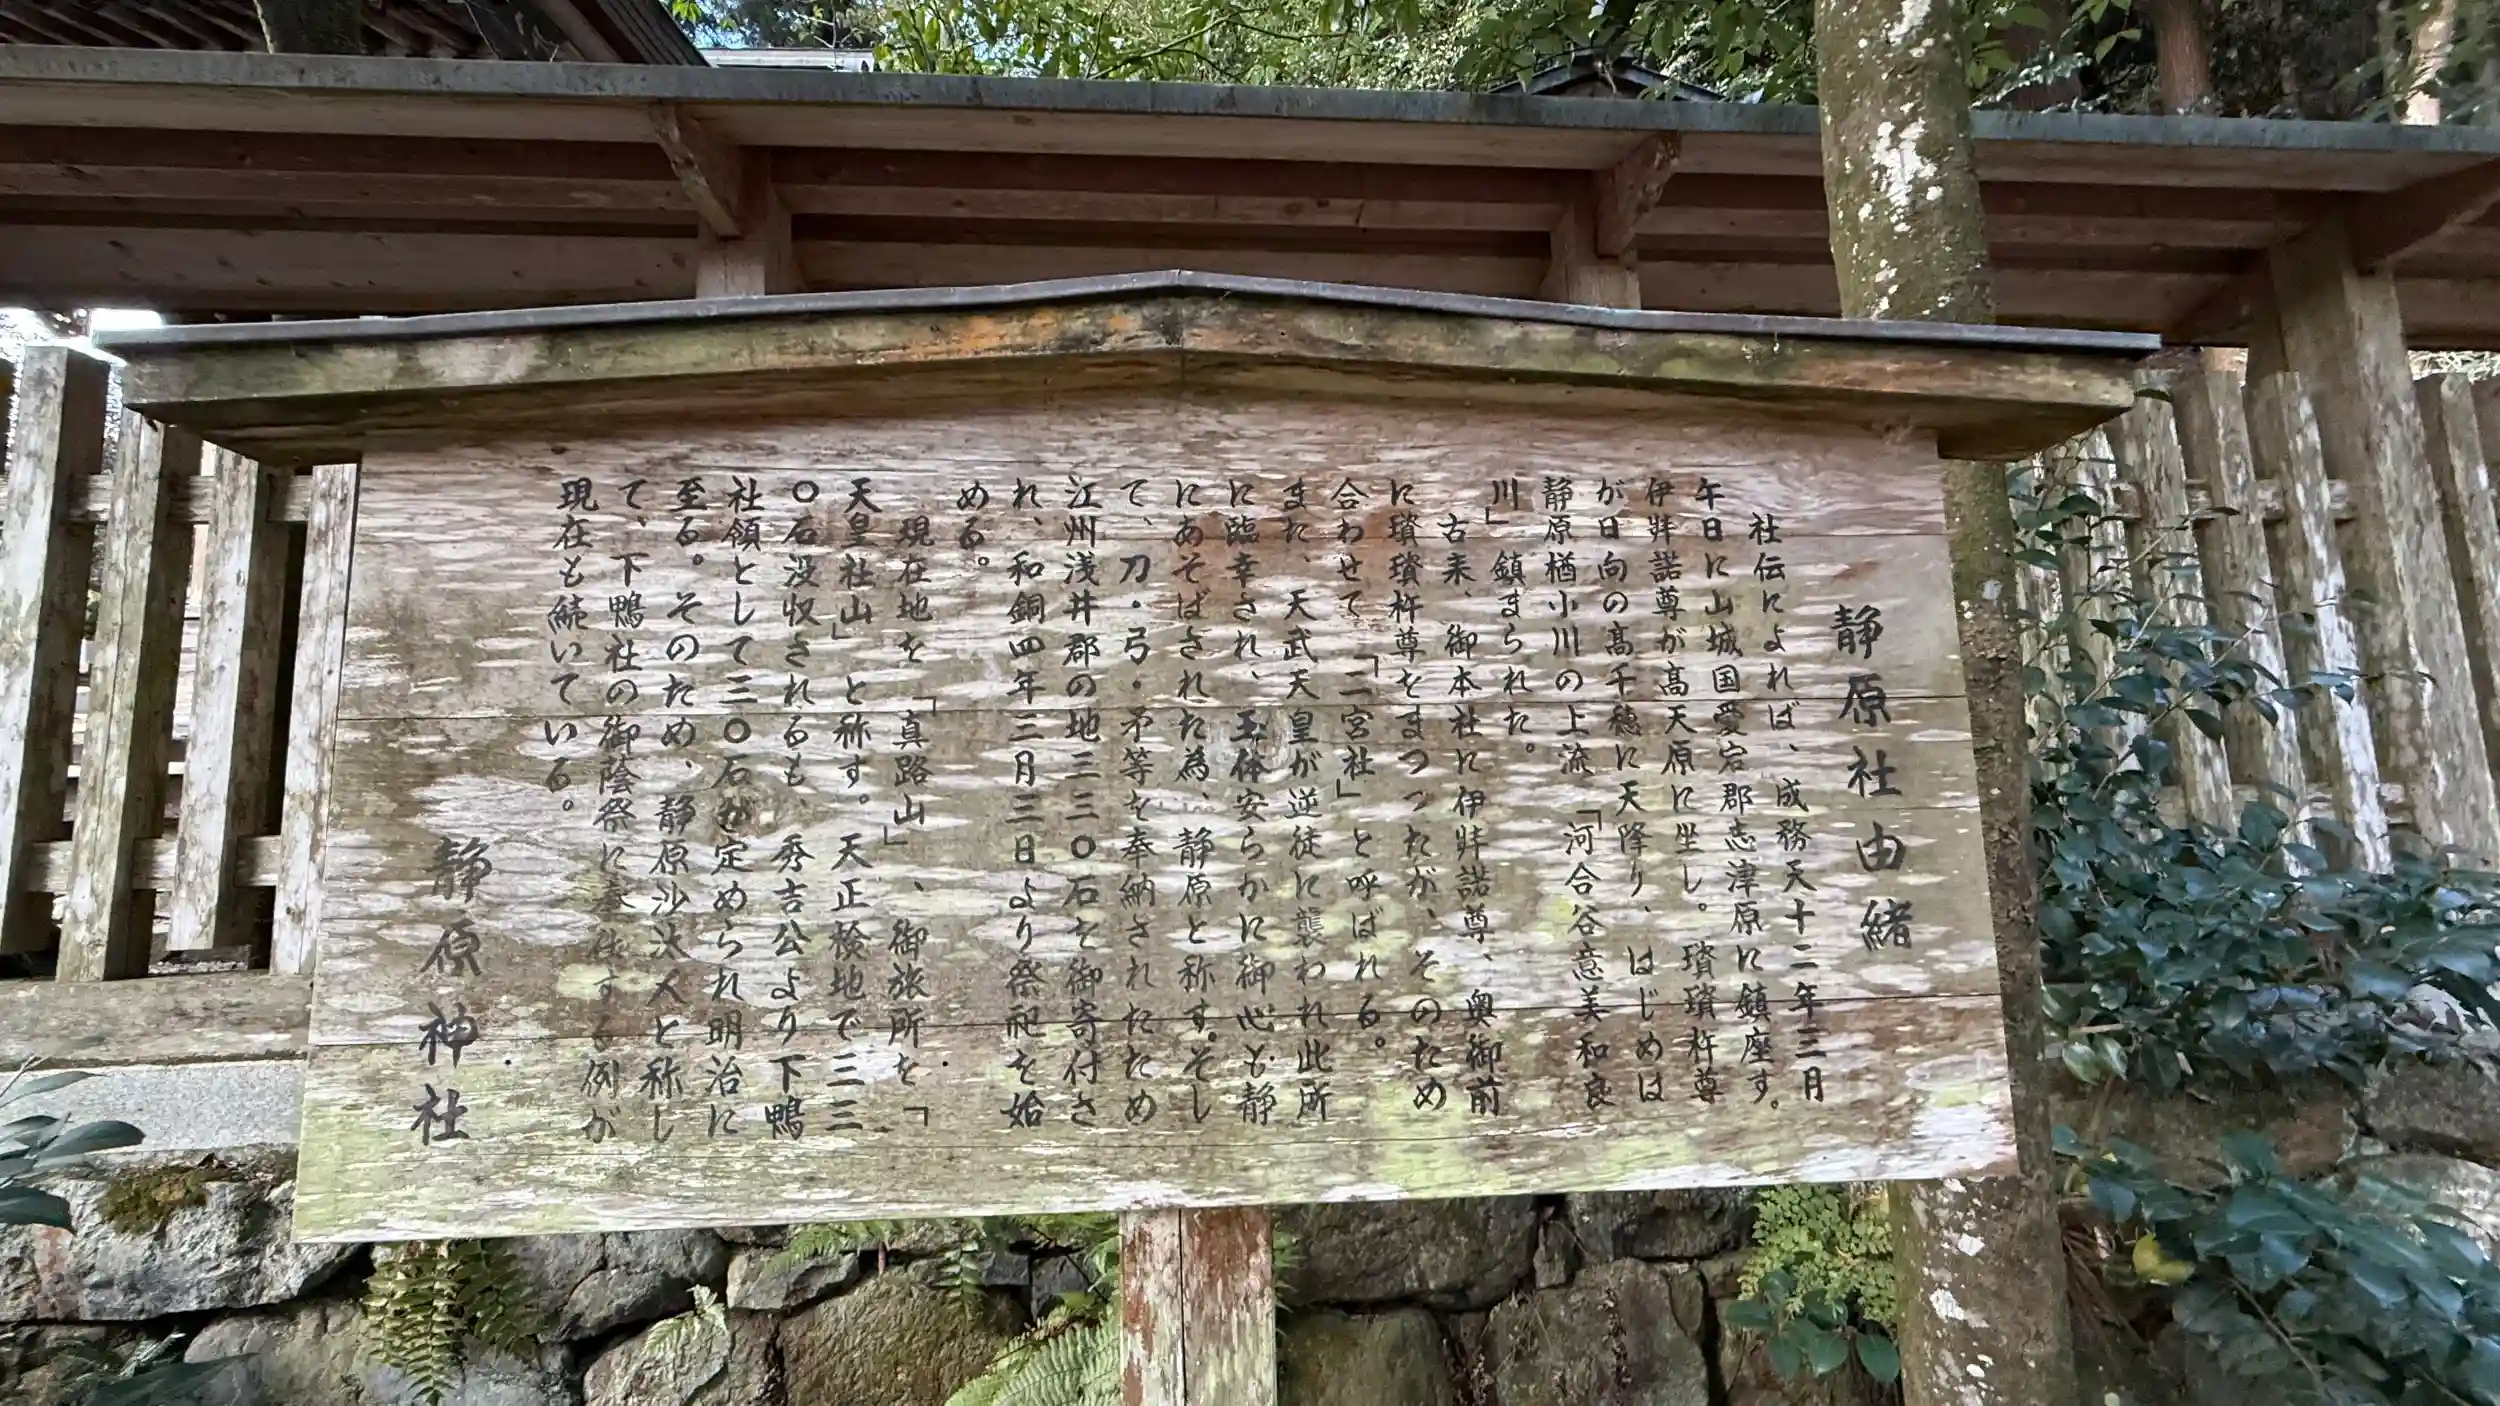 静原社由緒
社伝によれば、成務天十二年三月
午日に山城国愛宕郡志津原に鎮座す。
伊弉諾尊が高天原に坐し。瓊瓊杵尊
が日向の高千穂に天降り、はじめは
静原楢小川の上流「河合谷意美和良
川」鎮まられた。
古来、御本社に伊弉諾尊、奥御前
に瓊瓊杵尊をまつつたが、そのため
合わせて「二宮社」と呼ばれる。
また、天武天皇が逆徒に襲われ此所
に臨幸され、玉体安らかに御心も静
にあそばされた為、静原と称す。そし
て、刀・弓・矛等を奉納されたため
江州浅井郡の地三三〇石を御寄付さ
れ、和銅四年三月三日より祭祀を始
める。
現在地を「真路山」、御旅所を「
天皇社山」と称す。天正検地で三三
〇石没収されるも、秀吉公より下鴨
社領として三〇石が定められ明治に
至る。そのため、静原沙汰人と称し
て、下鴨社の御蔭祭に奉仕する例が
現在も続いている。
静原神社